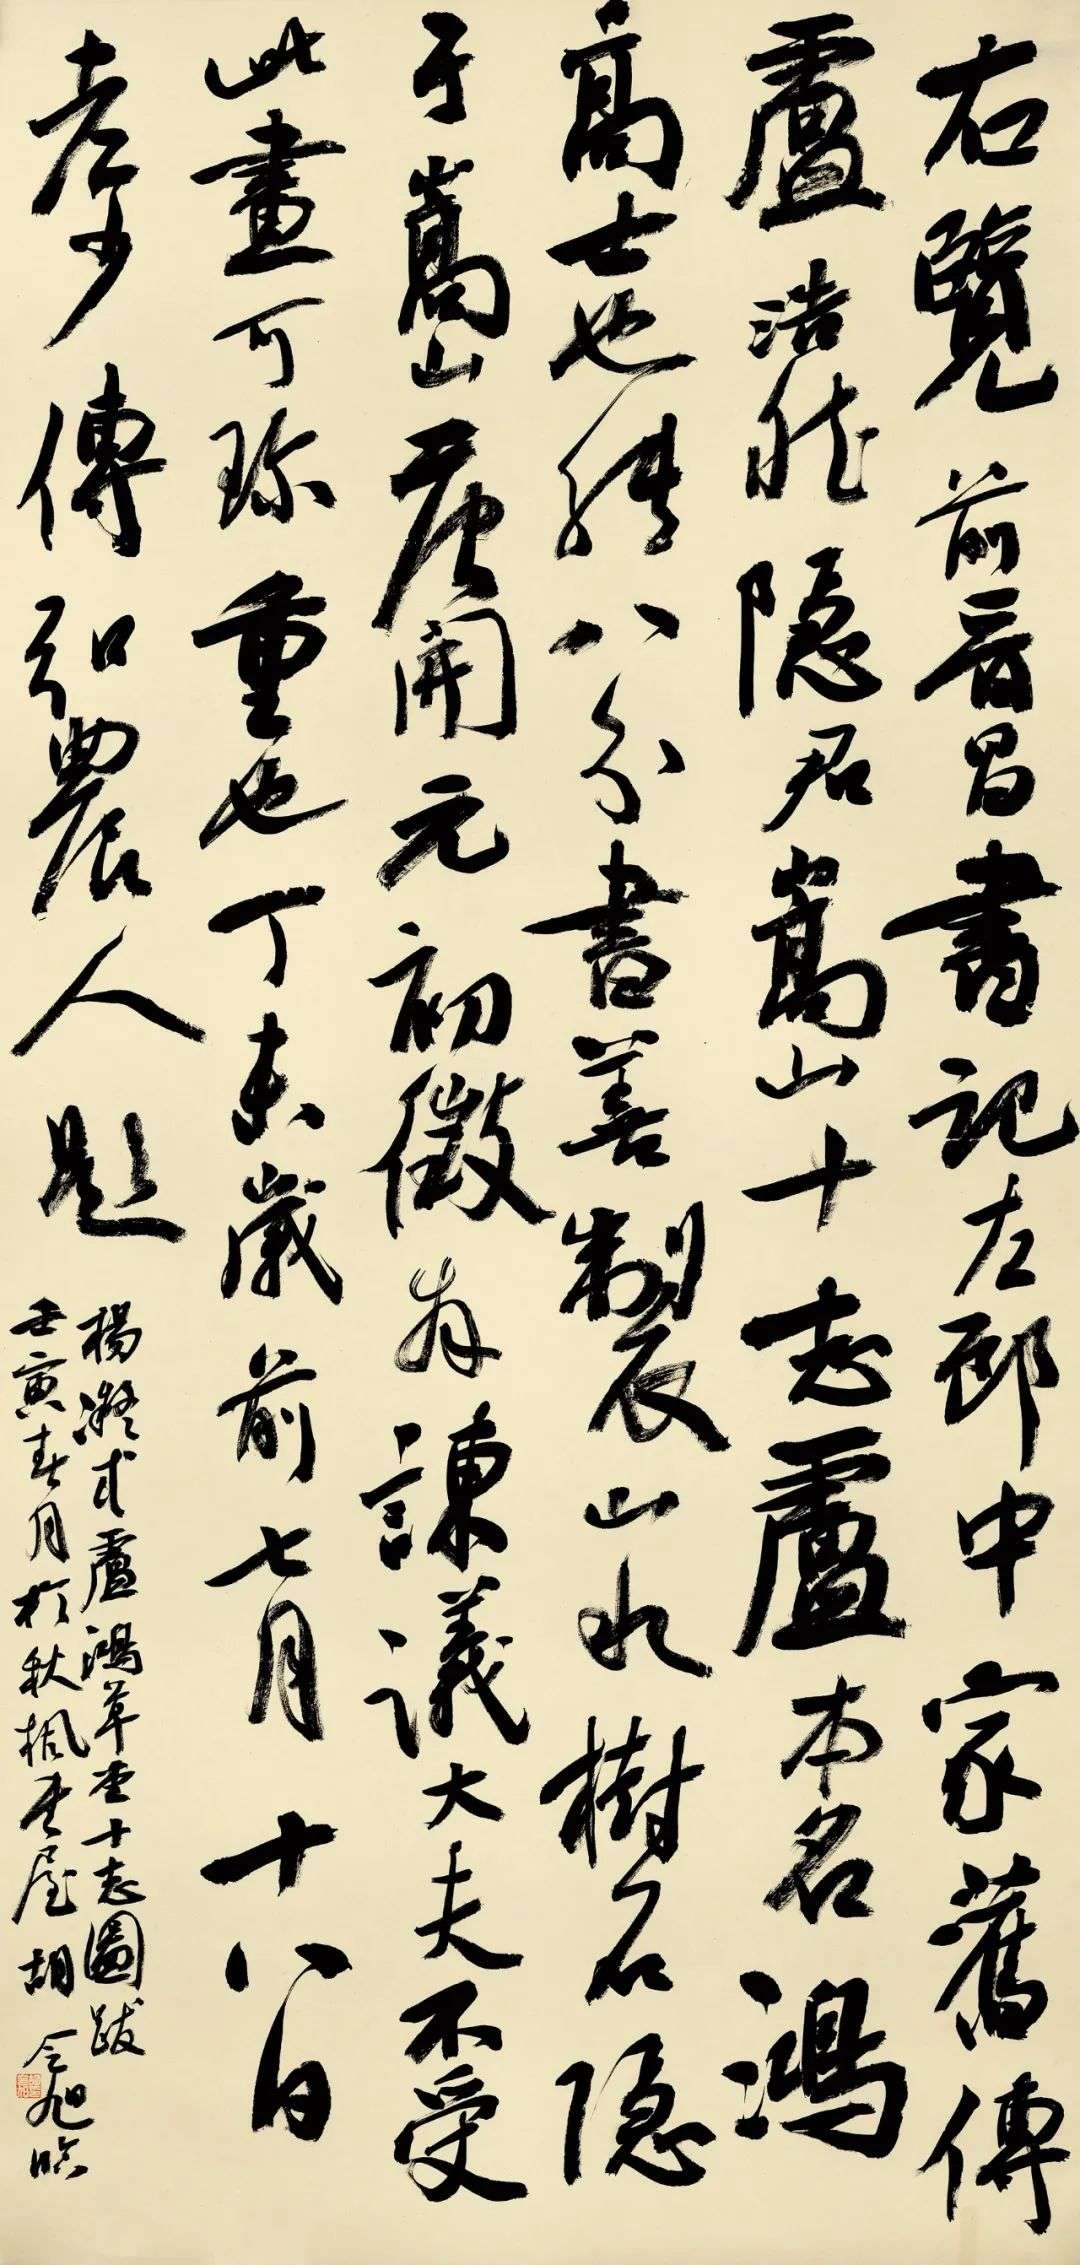 右覽前晉昌書記左郎中家舊傳
盧浩然隱君嵩山十志盧本名鴻
高士也能八分書善製山水樹石隱
于嵩山唐開元初徵為諫議大夫不受
此畫可珍重也丁未歲前七月十八日
老少傅弘農人題
楊凝式盧鴻草堂十志圖跋
壬寅春月於秋楓書屋胡令旭臨